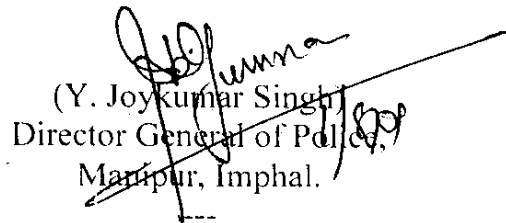 (Y. Joykumar Singh)
Director General of Police,
Manipur, Imphal.